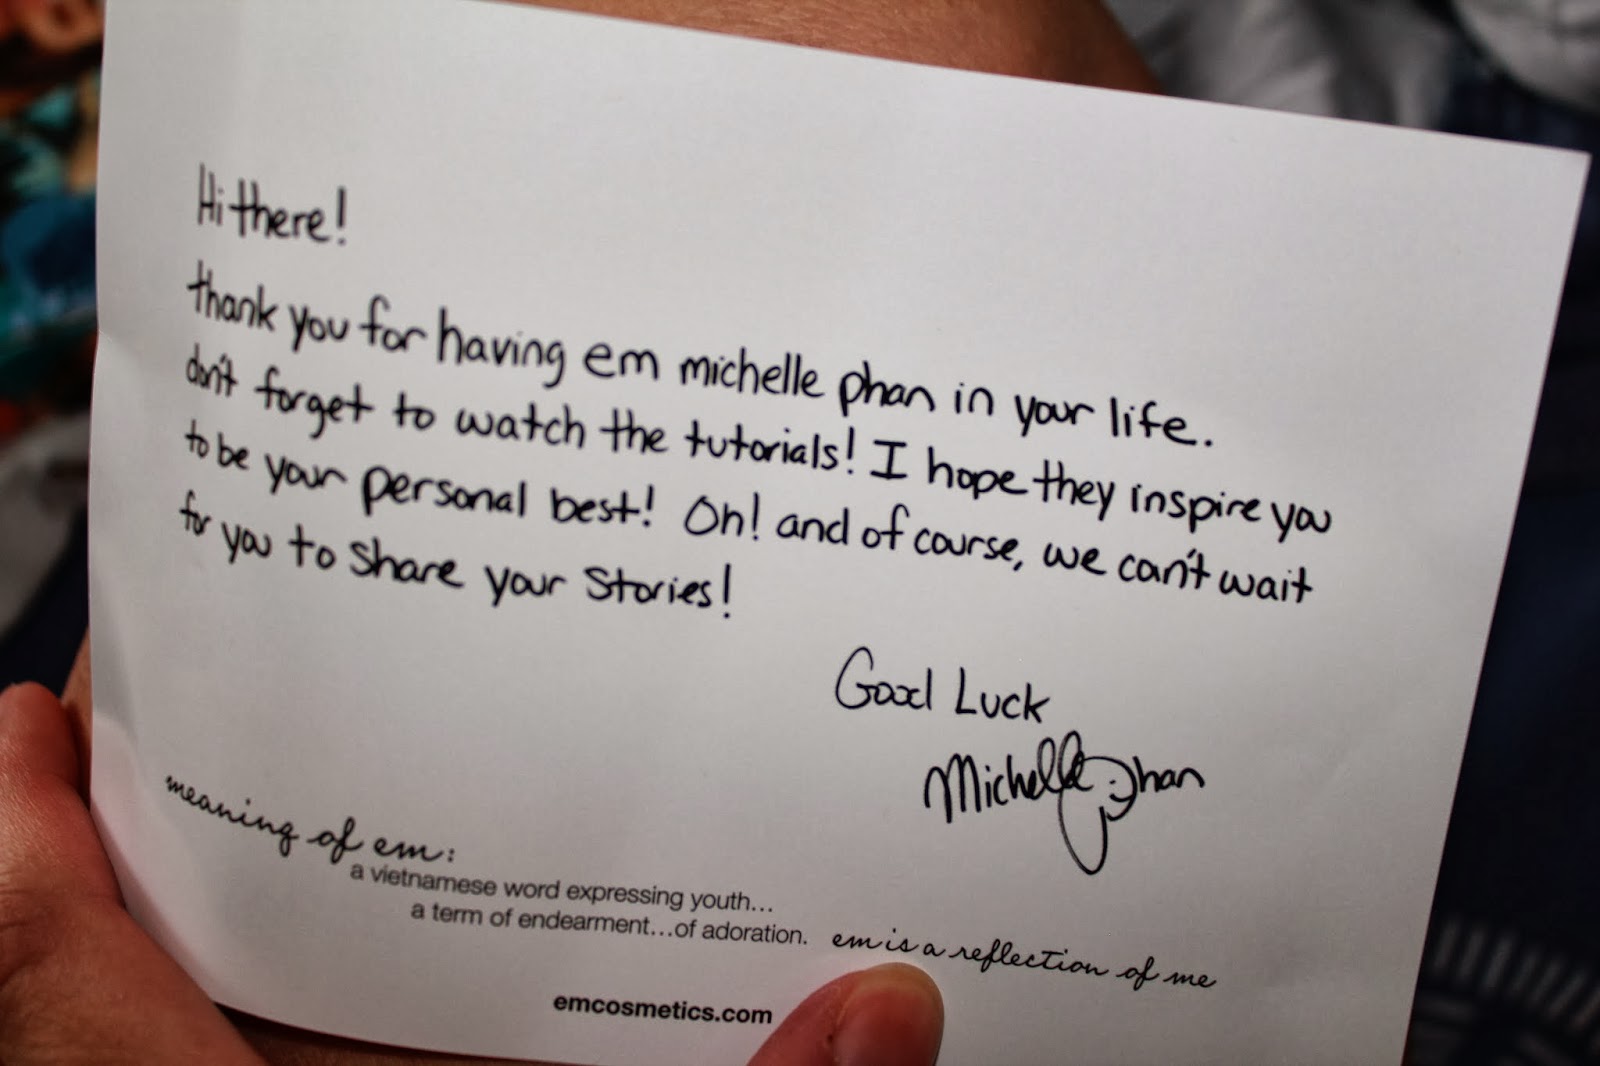 Hi there!
thank you for having em michelle phan in your life.
don't forget to watch the tutorials! I hope they inspire you
to be your personal best! Oh! and of course, we can't wait
for you to share your stories!
Good Luck
Michelle Phan
meaning of em:
a vietnamese word expressing youth...
a term of endearment...of adoration. em is a reflection of me
emcosmetics.com